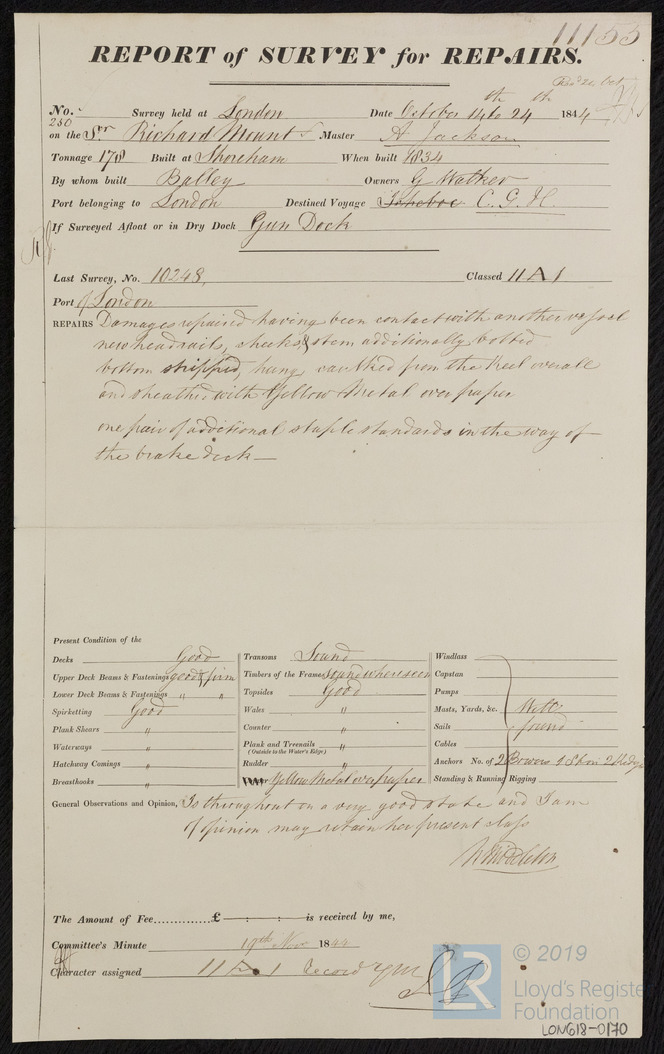 11153
REPORT of SURVEY for REPAIRS.
Recd 26 Oct
No. 280 Survey held at London Date October 14th to 24th 1844
on the Sr Richard Mount Master A Jackson
Tonnage 178 Built at Shoreham When built 1834
By whom built Balley Owners G Walker
Port belonging to London Destined Voyage C. G. H.
If Surveyed Afloat or in Dry Dock Gun Dock
Last Survey, No. 10248, Classed 11 A 1
Port of London
REPAIRS Damages repaired having been contact with another vessel
new headrails, cheeks & stem additionally bolted
bottom stripped, hung caulked from the keel overall
and sheathed with Yellow Metal over paper
one pair of additional staple standards in the way of
the brake deck —
Present Condition of the
Decks Good
Upper Deck Beams & Fastenings good & firm
Lower Deck Beams & Fastenings " "
Spirketting Good
Plank Shears "
Waterways "
Hatchway Comings "
Breasthooks "
Transoms Sound
Timbers of the Frame sound where seen
Topsides Good
Wales "
Counter "
Plank and Treenails "
(Outside to the Water's Edge)
Rudder "
Yellow Metal over paper
Windlass
Capstan
Pumps
Masts, Yards, &c. Well
Sails found
Cables
Anchors No. of 2 Bowers 1 Strm 2 Kedge
Standing & Running Rigging
General Observations and Opinion, Is throughout in a very good state and I am
of opinion may retain her present class
Middleton
The Amount of Fee..............£ — : — : — is received by me,
Committee's Minute 19th Nov 1844
Character assigned 11 A 1 Record YM
LR
© 2019
Lloyd's Register
Foundation
LON618-0170